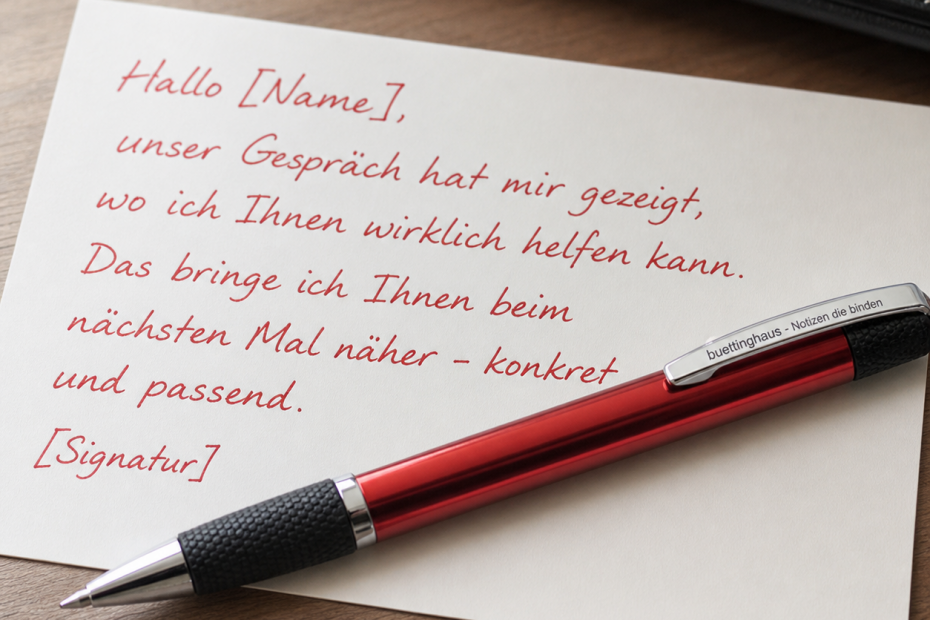 Hallo [Name],
unser Gespräch hat mir gezeigt,
wo ich Ihnen wirklich helfen kann.
Das bringe ich Ihnen beim
nächsten Mal näher – konkret
und passend.
[Signatur]
buettinghaus - Notizen die binden